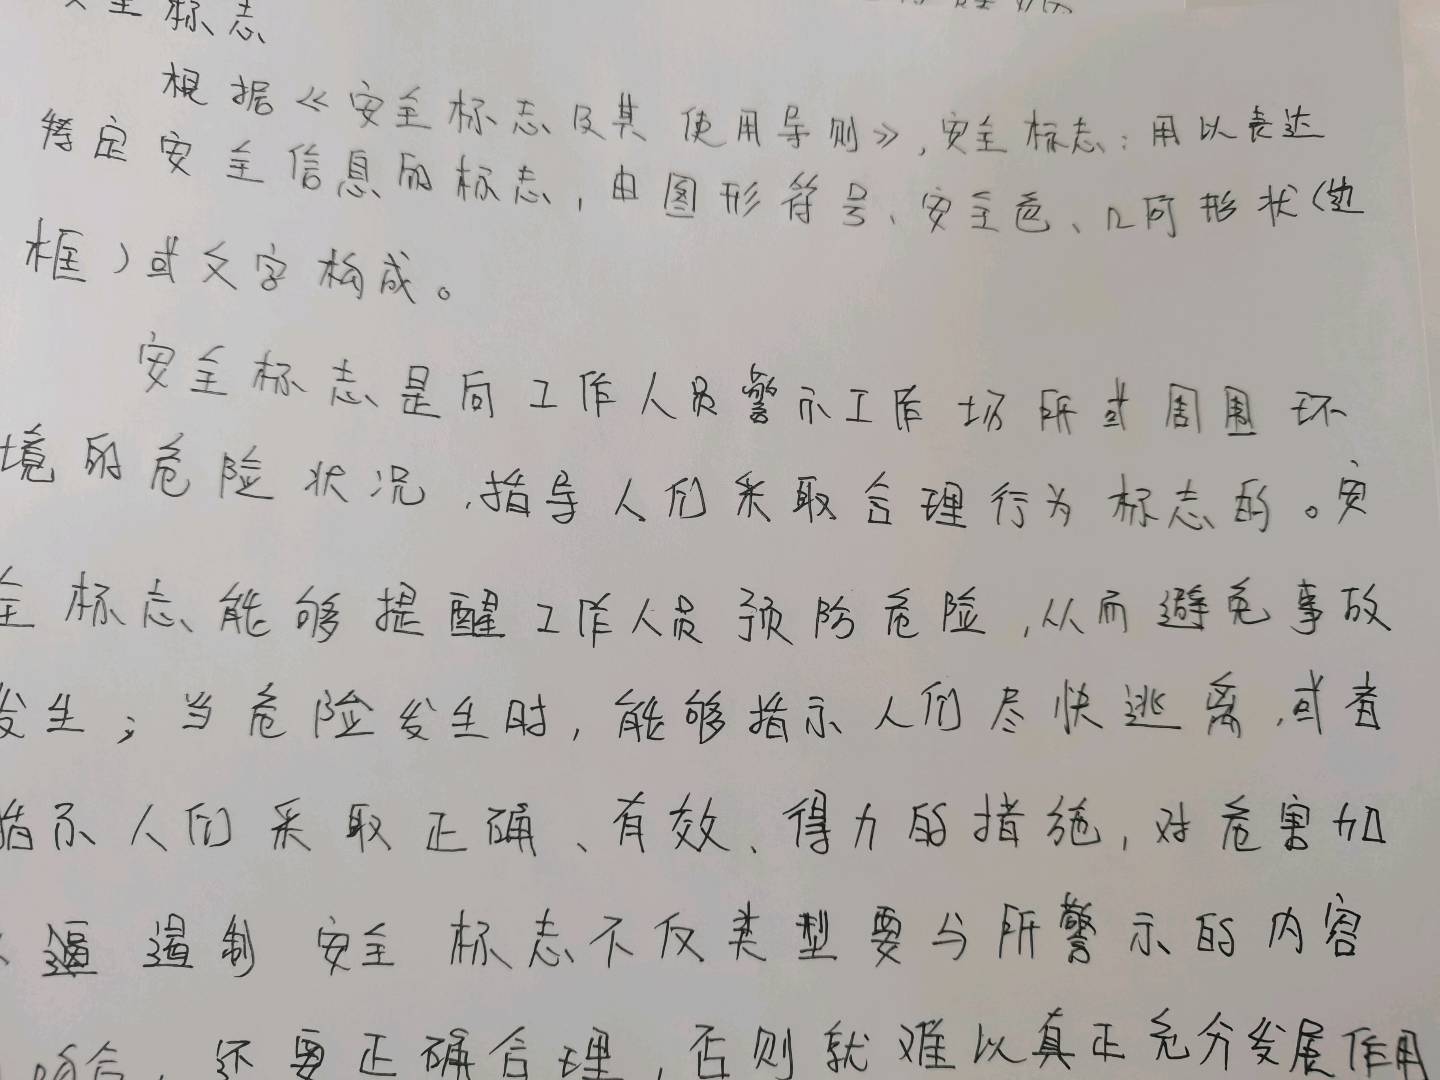 安全标志
根据《安全标志及其使用导则》,安全标志:用以表达
特定安全信息的标志,由图形符号、安全色、几何形状(边
框)或文字构成。
安全标志是向工作人员警示工作场所或周围环
境的危险状况,指导人们采取合理行为标志的。安
全标志能够提醒工作人员预防危险,从而避免事故
发生;当危险发生时,能够指示人们尽快逃离,或者
指示人们采取正确、有效、得力的措施,对危害加
遏制 安全标志不仅类型要与所警示的内容
吻合,还要正确合理,否则就难以真正充分发展作用